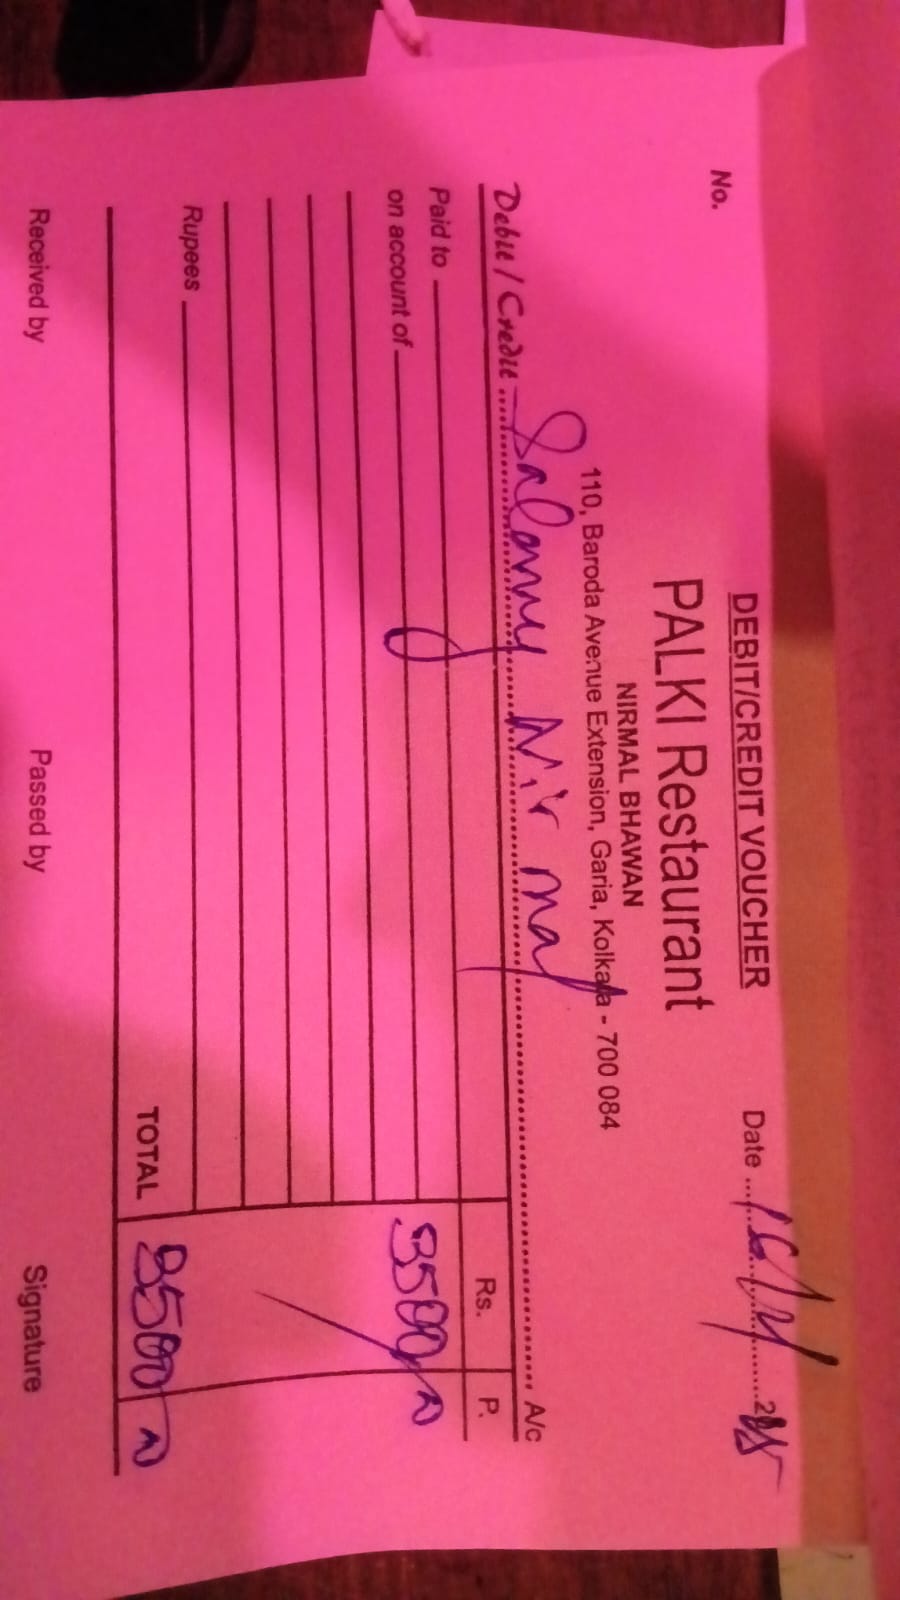 DEBIT/CREDIT VOUCHER
No.
PALKI Restaurant
NIRMAL BHAWAN
110, Baroda Avenue Extension, Garia, Kolkata - 700 084
Debit / Credit Salary Nirmal A/c
Date
Rs. P.
Paid to
on account of 3500
Rupees
TOTAL 3500
Received by Passed by Signature